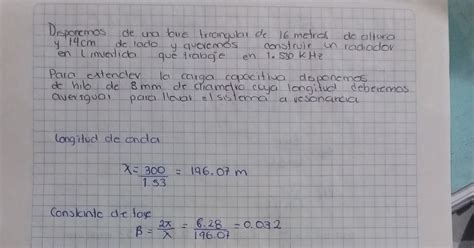 Disponemos de una torre triangular de 16 metros de altura
y 14cm de lado y queremos construir un radiador
en L invertida que trabaje en 1.530 KHz
Para extender la carga capacitiva disponemos
de hilo de 8mm. de diametro cuya longitud deberemos
averiguar para llevar el sistema a resonancia
Longitud de onda
λ = 300 / 1.53 = 196.07 m
Constante de fase
β = 2π / λ = 6.28 / 196.07 = 0.032